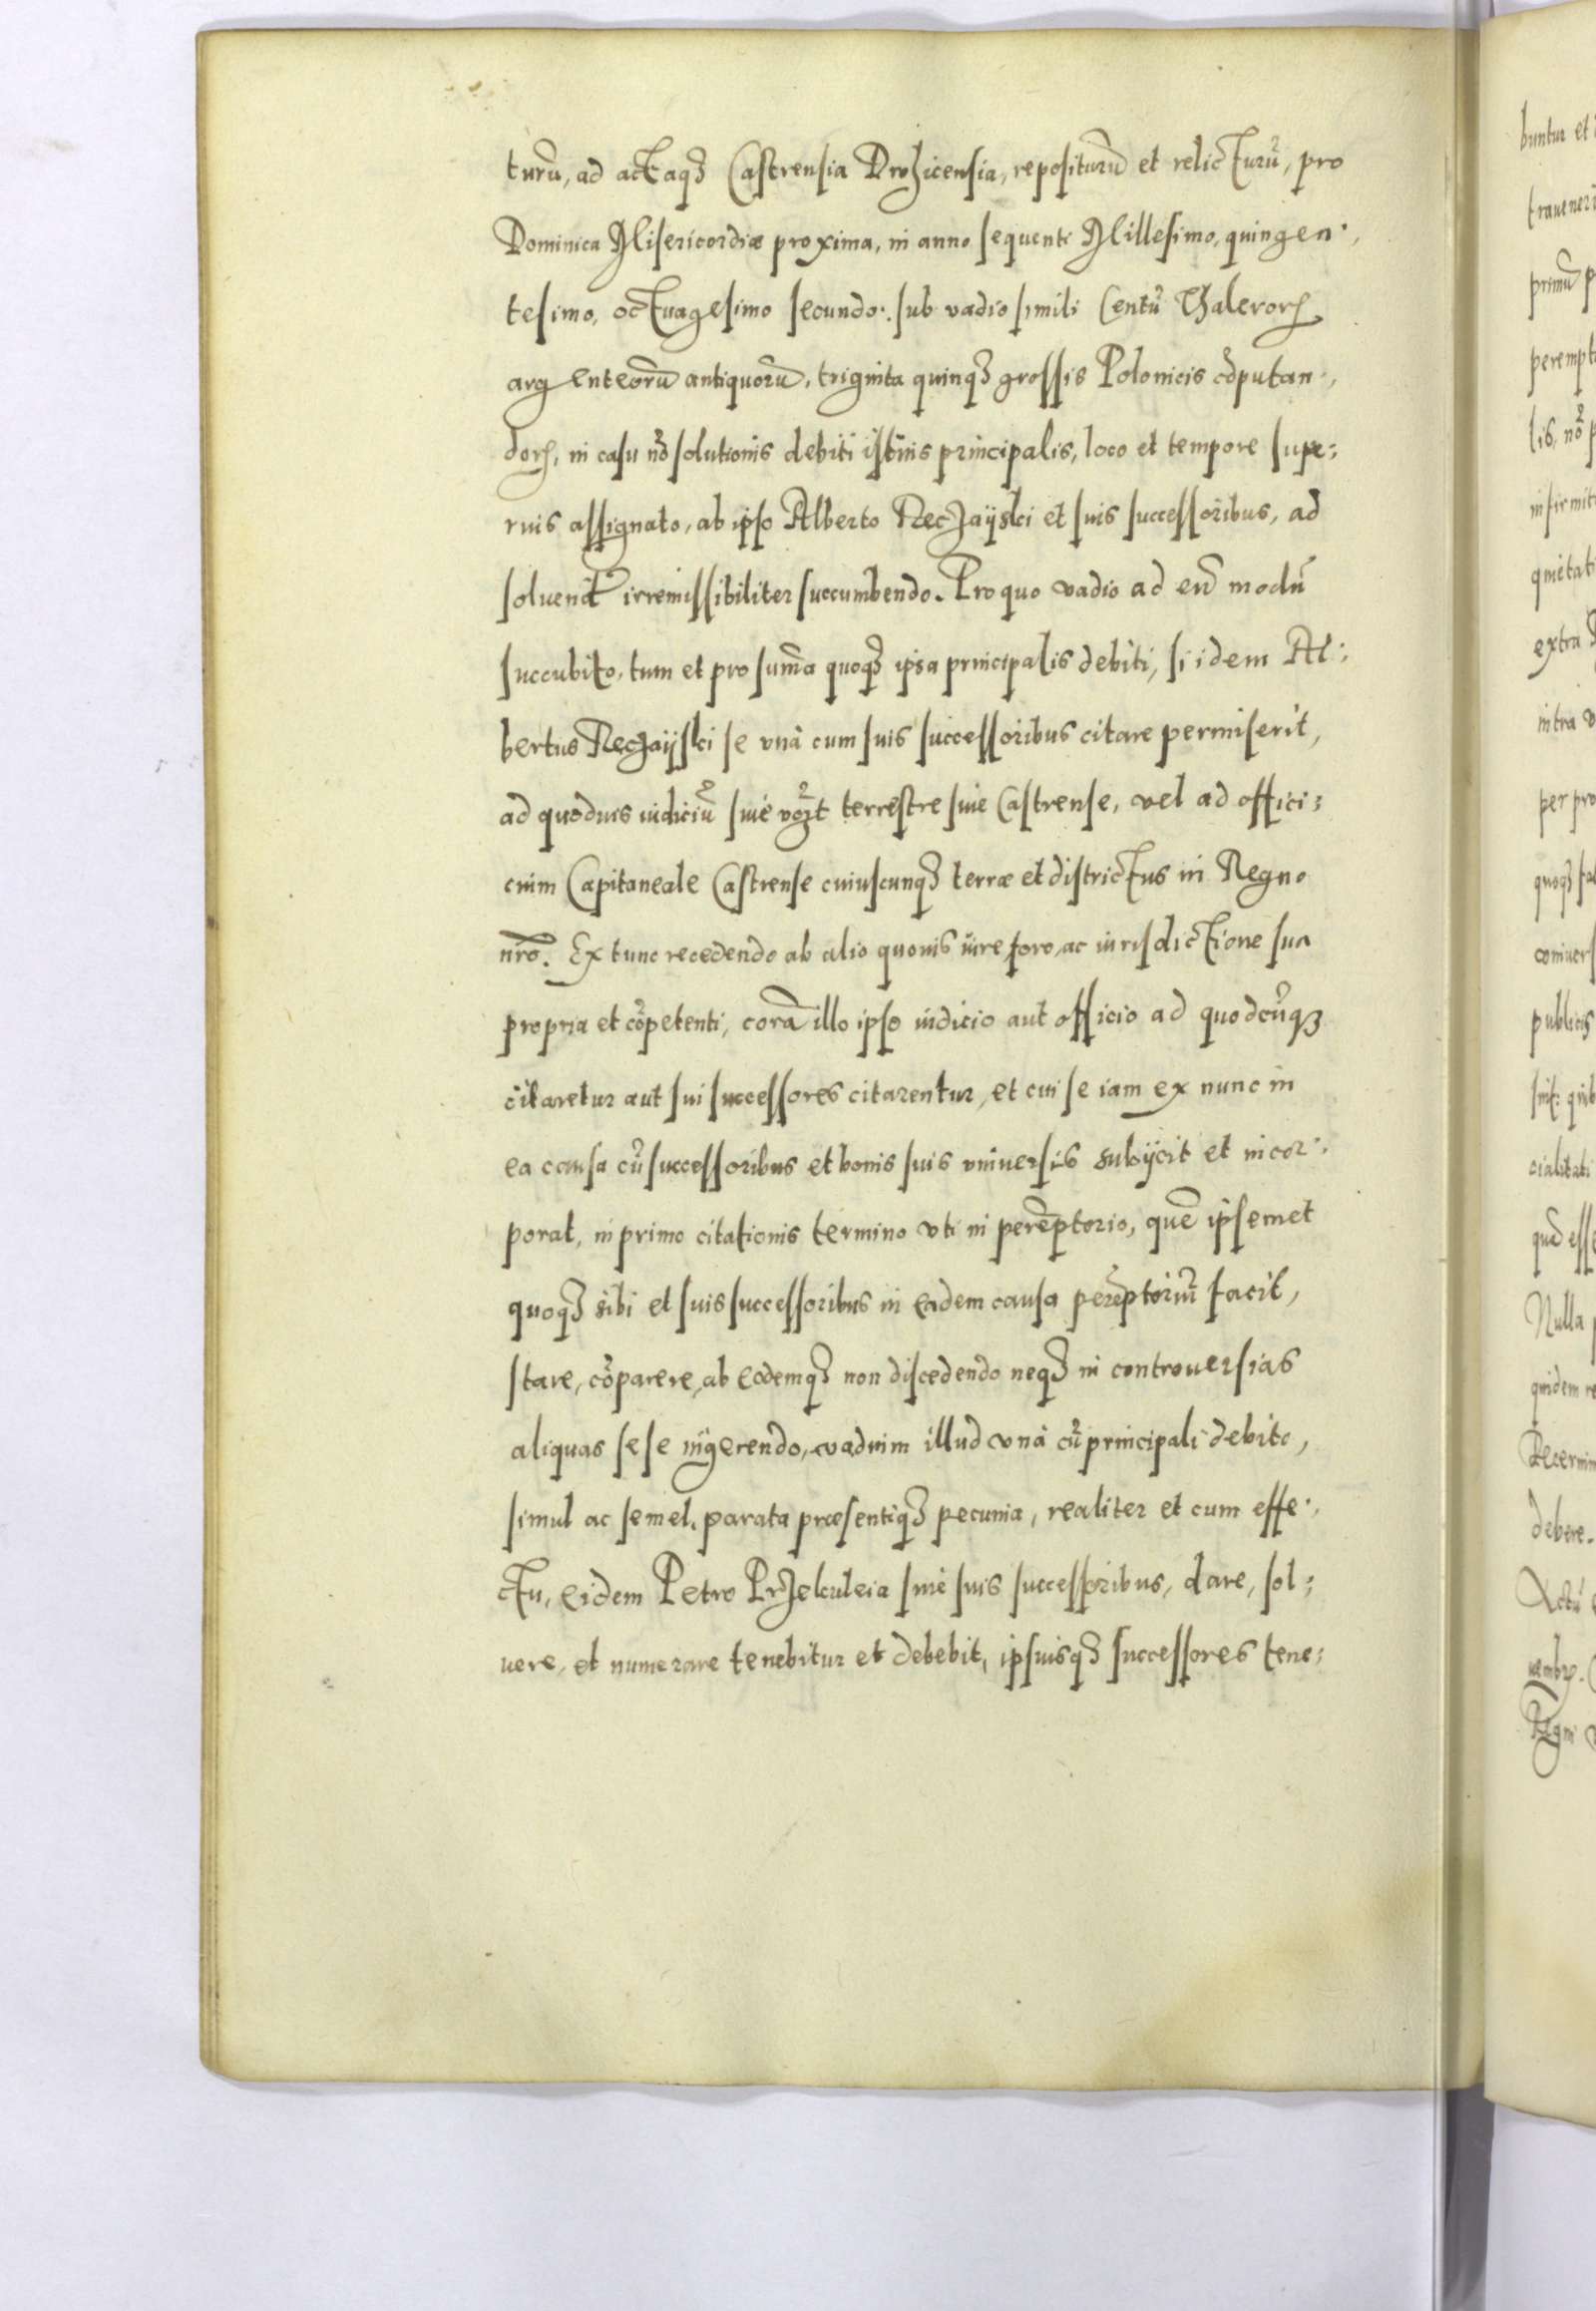 turũ, ad actaqȝ Castrensia Drohicensia, repositurũ et relicturũ, pro
Dominica Misericordiæ proxima, in anno sequenti Millesimo, quingen:
tesimo, octuagesimo secundo: sub vadio simili Centũ Thalerorꝝ
argenteorũ antiquorũ, triginta quinqȝ grossis Polonicis cõputan:
dorꝝ, in casu nõ solutionis debiti istius principalis, loco et tempore supe:
rius assignato, ab ipso Alberto Reczayski et suis successoribus, ad
irremissibiliter succumbendo. Pro quo vadio ad eũ modũ
succubito, tum et pro suma quoqȝ ipsa principalis debiti, si idem Al:
bertus Reczayski se vnà cum suis successoribus citare permiserit,
ad quoduis iudiciũ siue terrestre siue Castrense, vel ad offici:
cium Capitaneale Castrense cuiuscunqȝ terræ et districtus in Regno
nrõ. Ex tunc recedendo ab alio quouis iure, foro, ac iurisdictione sua
propria et cõpetenti, corã illo ipso iudicio aut officio ad quodcũqȝ
citaretur aut sui successores citarentur, et cui se iam ex nunc in
ea causa cũ successoribus et bonis suis vniuersis subijcit et incor:
porat, in primo citationis termino vti in perẽptorio, quẽ ipsemet
quoqȝ sibi et suis successoribus in eadem causa perẽptoriũ facit,
stare, cõparere, ab eodemqȝ non discedendo neqȝ in controuersias
aliquas sese ingerendo, vadium illud vnà cũ principali debito,
simul ac semel, parata præsentiqȝ pecunia, realiter et cum effe:
ctu, eidem Petro Przekuleia siue suis successoribus, dare, sol:
uere, et numerare tenebitur et debebit, ipsuisqȝ successores tene: